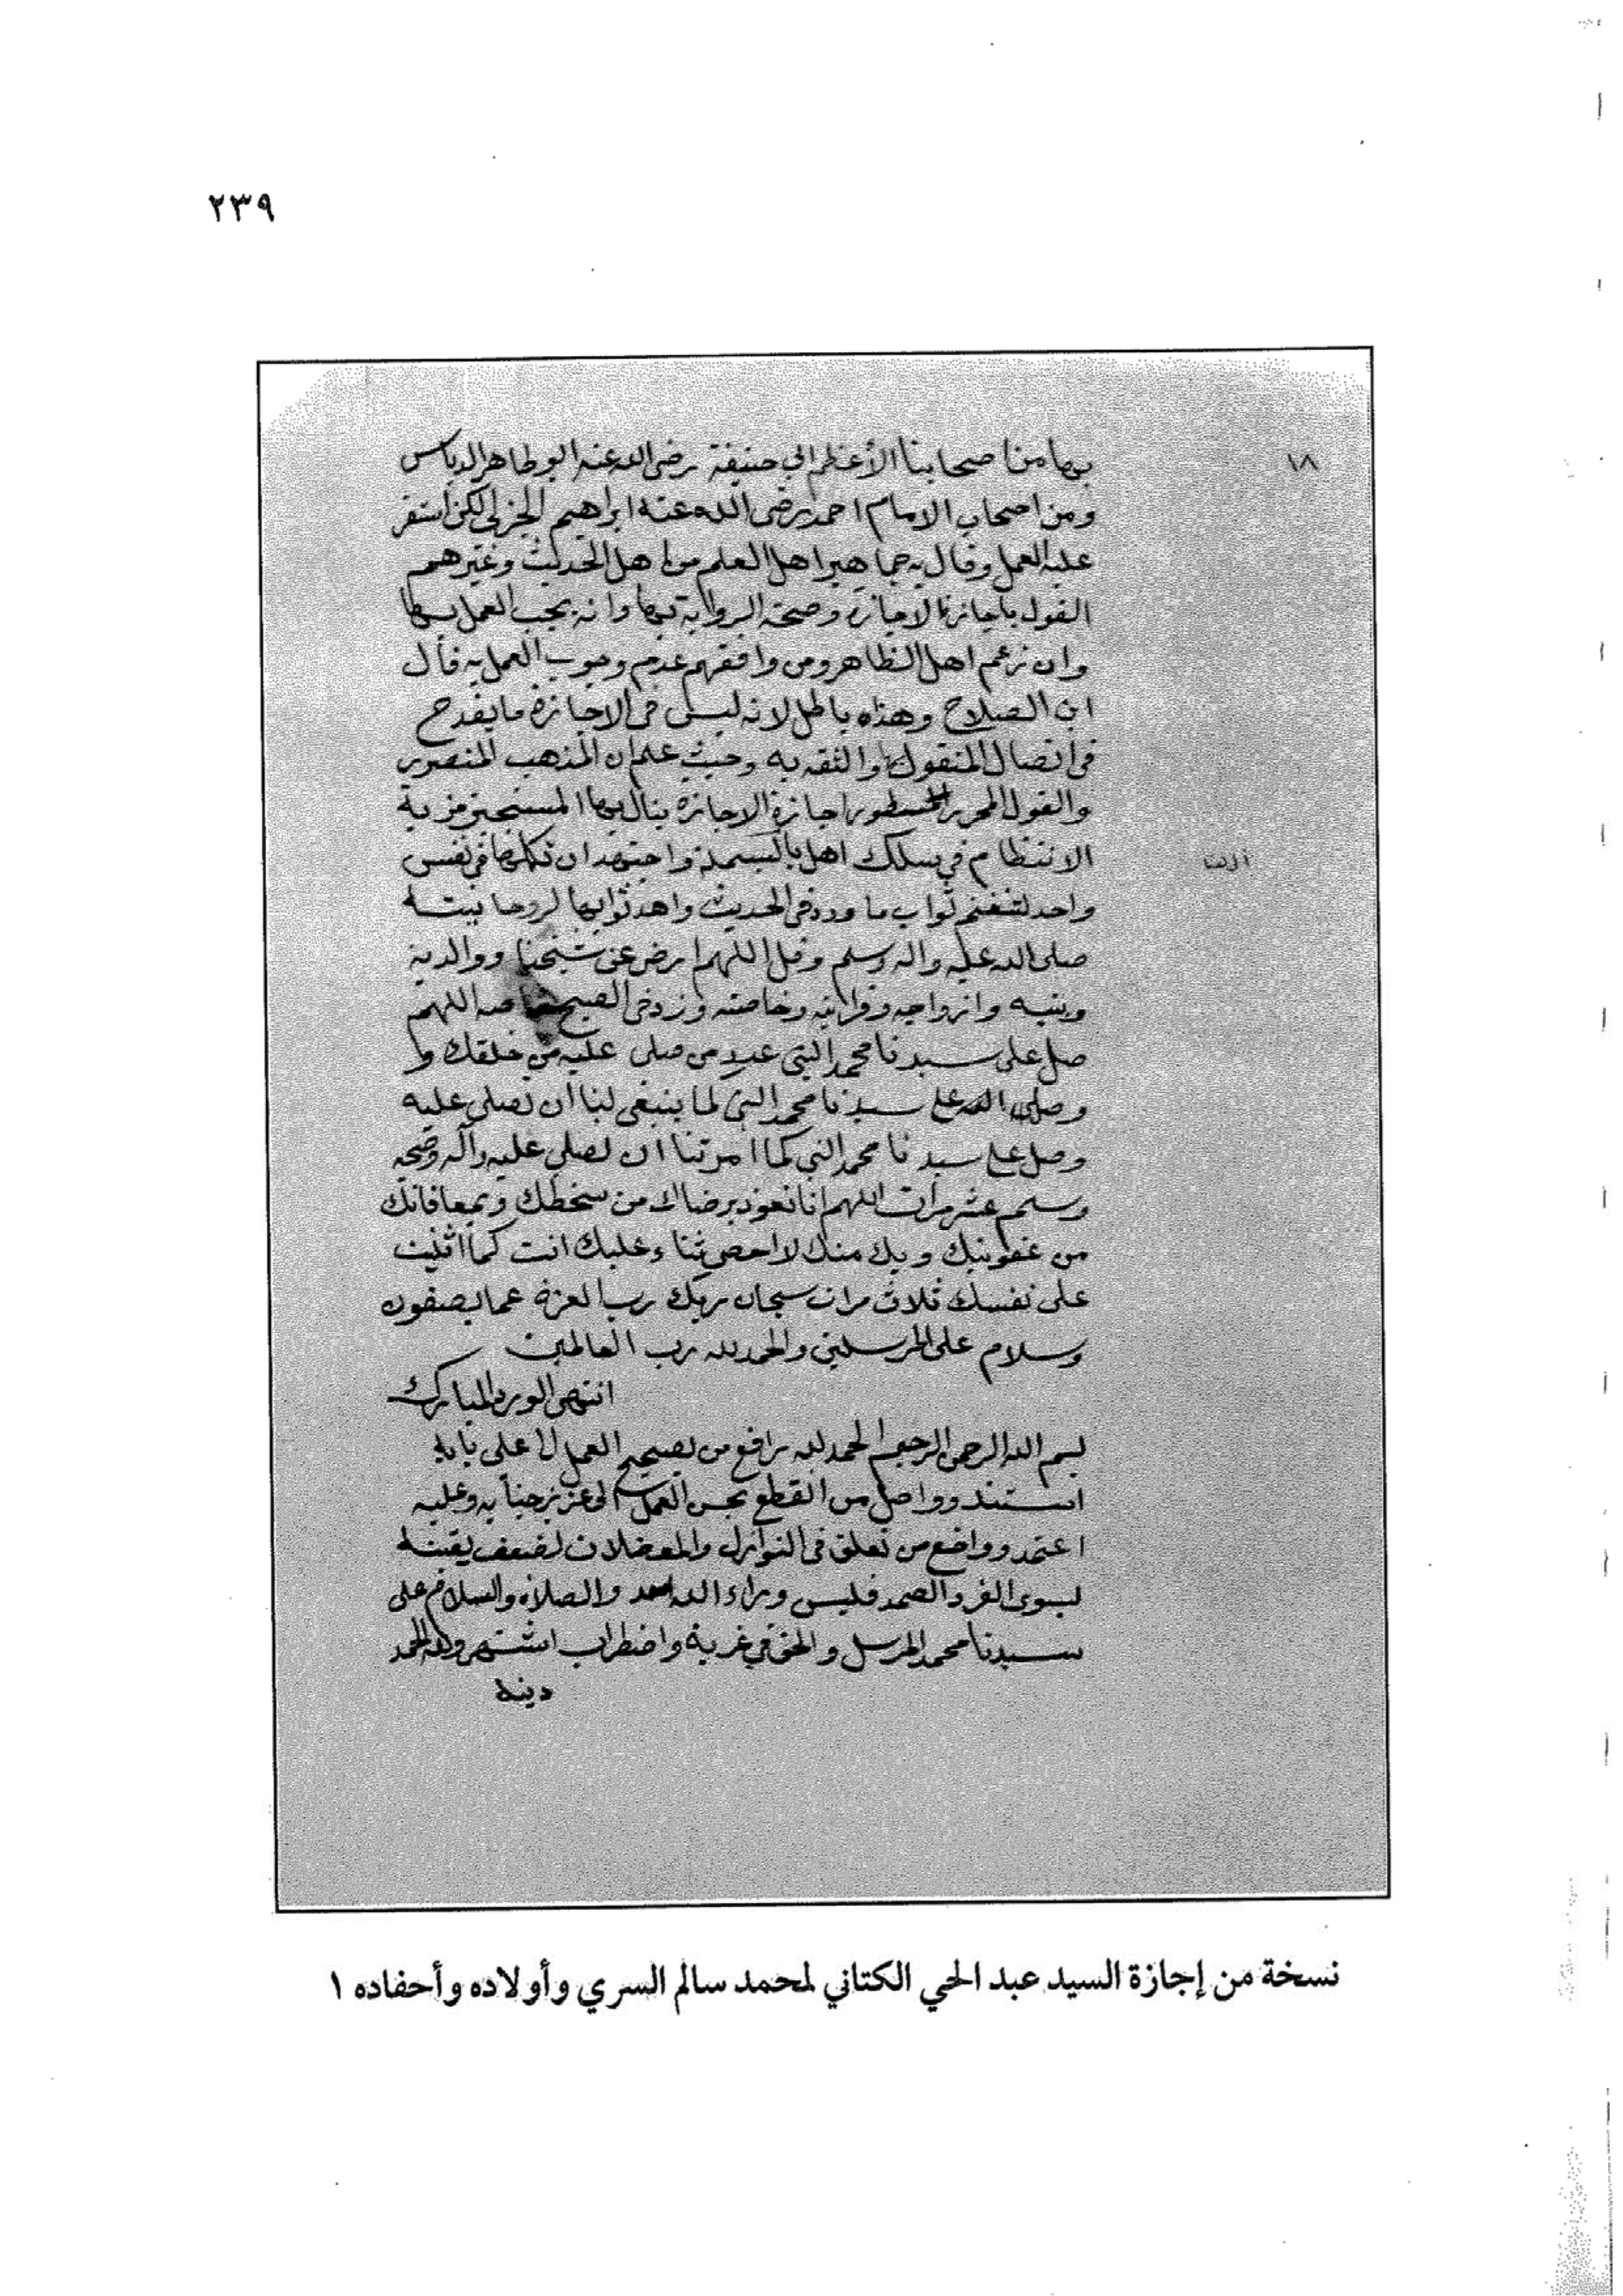 ٢٣٩
١٨
بها من اصحابنا الأعظم ابي حنيفة رضي الله عنه ابو طاهر الدباس
ومن اصحاب الامام احمد رضى الله عنه ابراهيم الحزلي لكن استقر
عليه العمل وقال به جماهير اهل العلم من اهل الحديث وغيرهم
القول باجازة الاجازة وصحة الرواية بها وانه يجب العمل بها
وان زعم اهل الظاهر ومن وافقهم عدم وجوب العمل به قال
ابن الصلاح وهذه باطل لانه ليس في الاجازة ما يقدح
في اتصال المنقول بها والثقه به وحيث علم ان المذهب المنصور
والقول المحرر المسطور اجازة الاجازة ينال بها المستجيز مزية
الانتظام في سلك اهل بالبسملة واجتهد ان تكملها في نفس
واحد لتغنم ثواب ما ورد في الحديث واهد ثوابها لروحانيته
صلى الله عليه واله وسلم وقل اللهم ارض عن شيخنا ووالديه
وبنيه وازواجه وقرابته وخاصته وزد في الصبح خاصه اللهم
صل على سيدنا محمد النبي عدد من صلى عليه من خلقك و
وصلى الله على سيدنا محمد النبي كما ينبغي لنا ان نصلي عليه
وصل على سيدنا محمد النبي كما امرتنا ان نصلي عليه وآله وصحبه
وسلم عشر مرات اللهم انا نعوذ برضاك من سخطك وبمعافاتك
من عقوبتك وبك منك لا احصي ثناء عليك انت كما اثنيت
على نفسك ثلاث مرات سبحان ربك رب العزة عما يصفون
وسلام على المرسلين والحمد لله رب العالمين
انتهى الورد المبارك
بسم الله الرحمن الرحيم الحمد لله رافع من بصحيح العمل الا على بابه
استند وواصل من انقطع بحسن العمل الى عزيز جنابه وعليه
اعتمد وواضع من تعلق في النوازل والمعضلات لضعف يقينه
لسوى الفرد الصمد فليس وراء الله احد والصلاة والسلام على
سيدنا محمد المرسل والحق في غربة واضطراب اشتهر ولله الحمد
دينه
نسخة من إجازة السيد عبد الحي الكتاني لمحمد سالم السري وأولاده وأحفاده ١